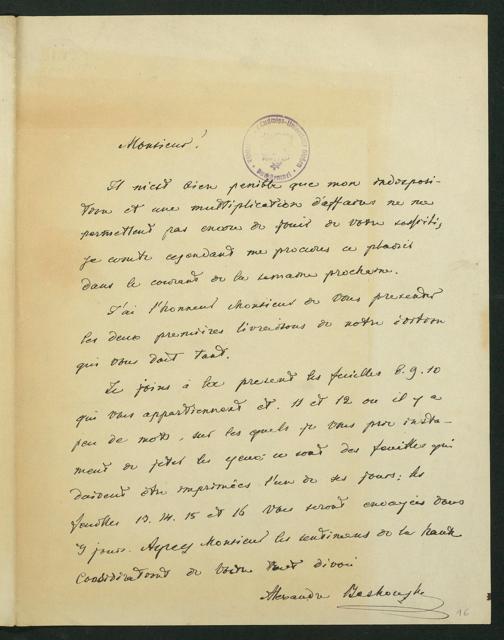 Monsieur!
Il m'est bien penible que mon indisposi-
tion et une multiplication d'affaires ne me
permettent pas encore de jouir de votre
je compte cependant me procurer ce plaisir
dans le courant de la semaine prochaine.
J'ai l'honneur Monsieur de vous presenter
les deux premières livraisons de notre édition
qui vous doit tant.
Je joins à la present les feuilles 8. 9. 10
qui vous appartiennent et 11 et 12 ou il y a
peu de mots, sur les quels je vous prie insta-
ment de jeter les yeux; ce sont des feuilles qui
doivent être imprimées l'un de ses jours; les
feuilles 13. 14. 15 et 16 vous seront envoyées dans
jours. Agreez Monsieur les sentimens de la haute
consideration de votre tout devoué
Alexandre
16